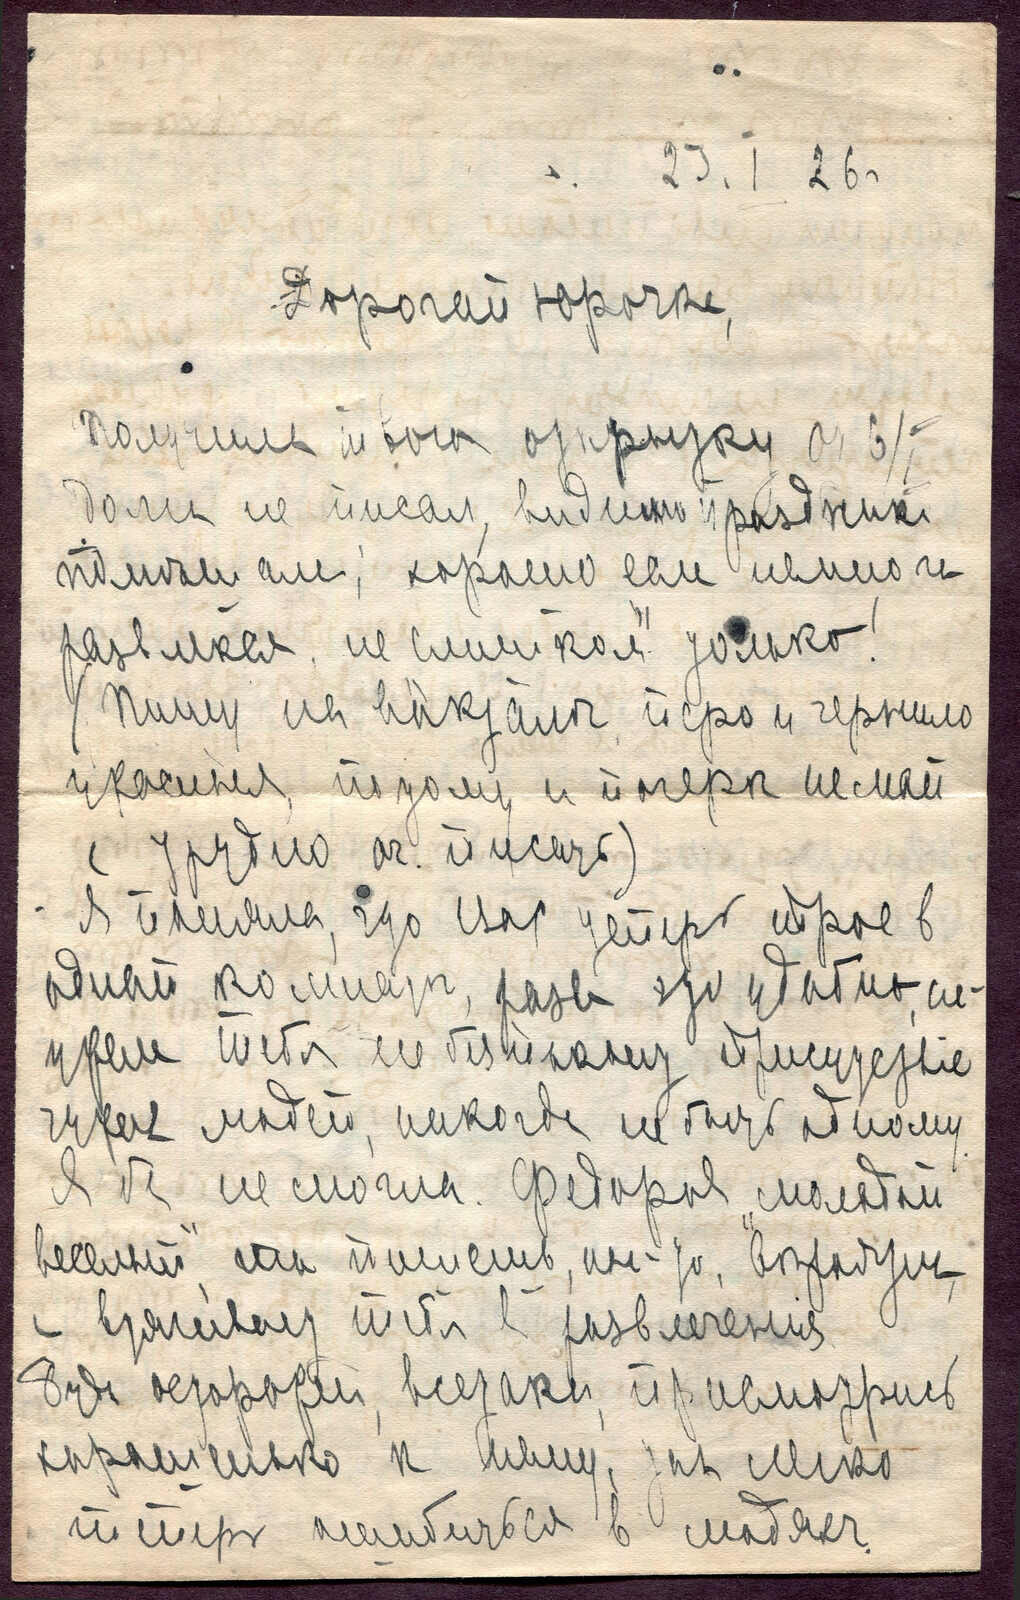 23. I 26 г
Дорогой Юрочка,
Получила твою открытку от 6/I
долго не писал, видимо праздники
помешали; хорошо если немного
развлёкся, не "слишком" только!
(Пишу на вокзале, перо и чернило
ужасныя, потому и почерк не мой
и трудно оч. писать)
Я поняла, что Вас теперь трое в
одной комнате, разве это удобно, не-
ужели тебя не беспокоит присутствие
чужих людей, никогда не быть одному.
Я бы не могла. Федоров "молодой
веселый", ты пишешь, как-то,
и втягивает тебя в развлечения
Будь осторожен, всетаки, присмотрись
хорошенько к нему, так легко
теперь ошибиться в людях.